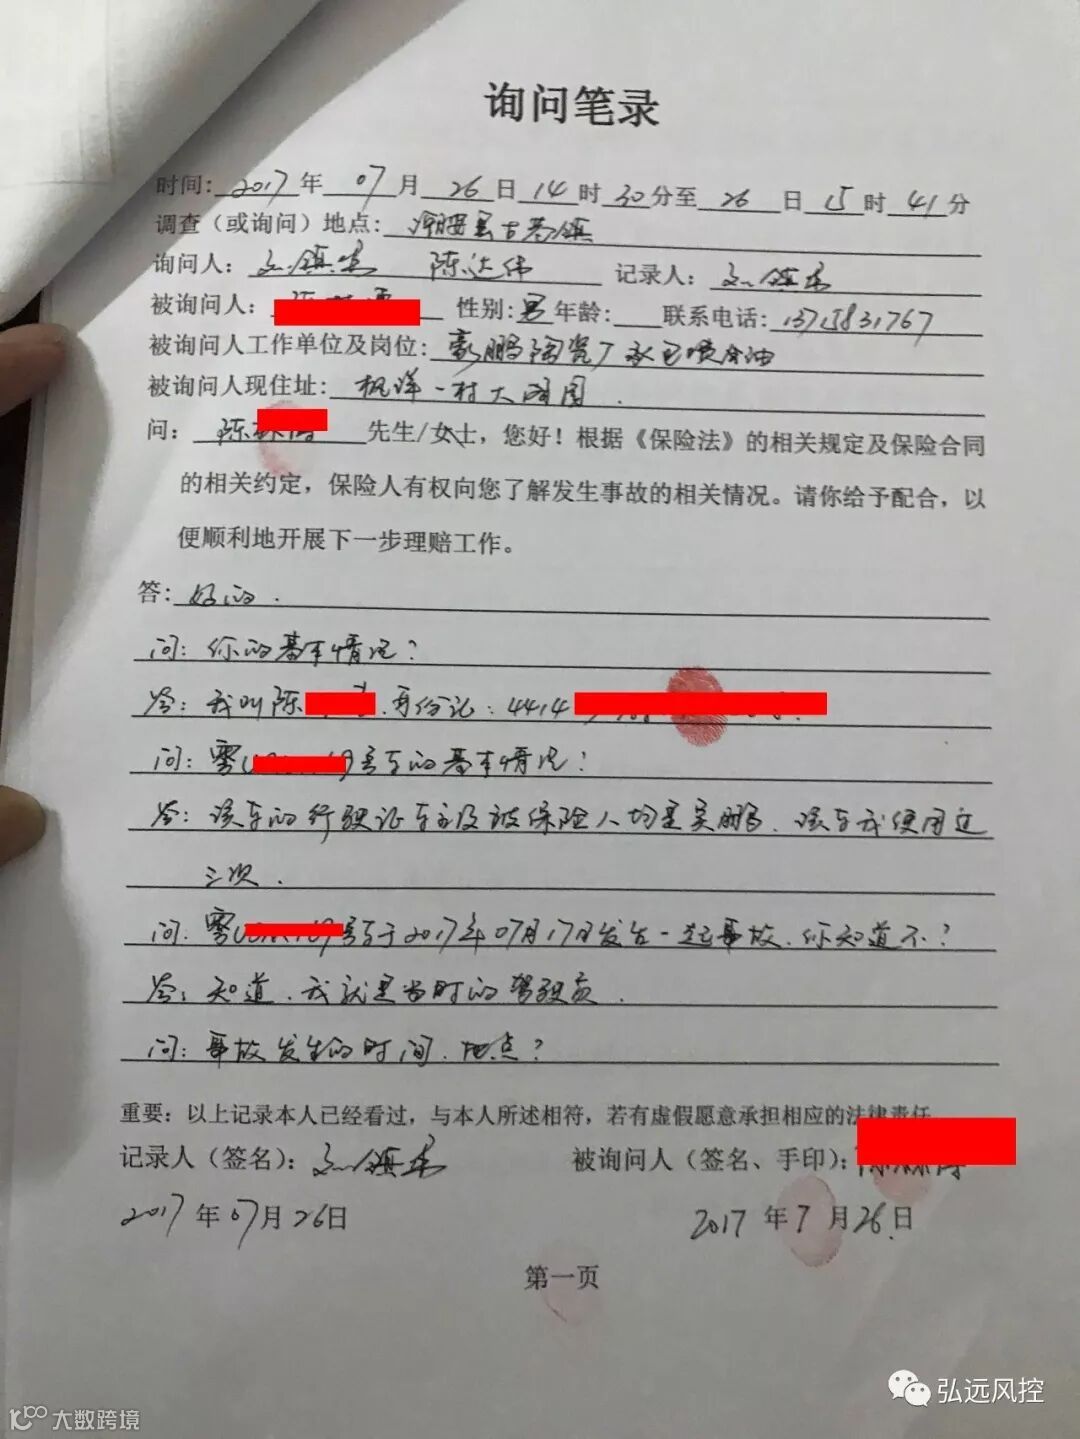 询问笔录
时间: 2017 年 07 月 26 日 14 时 30 分至 26 日 15 时 41 分
调查（或询问）地点: 潮安县古巷镇
询问人: 刘镇生 陈达伟 记录人: 刘镇生
被询问人: 性别: 男 年龄: 联系电话: 13715831767
被询问人工作单位及岗位: 豪鹏陶瓷厂承包喷釉油
被询问人现住址: 枫洋一村大
问: 陈 先生/女士，您好！根据《保险法》的相关规定及保险合同
的相关约定，保险人有权向您了解发生事故的相关情况。请你给予配合，以
便顺利地开展下一步理赔工作。
答: 好的.
问: 你的基本情况?
答: 我叫陈 身份证: 4414
问: 粤U 号车的基本情况?
答: 该车的行驶证车主及被保险人均是吴鹏. 该车我使用过
三次.
问: 粤U 号车于2017年07月17日发生一起事故. 你知道不?
答: 知道. 我就是当时的驾驶员.
问: 事故发生的时间. 地点?
重要: 以上记录本人已经看过，与本人所述相符，若有虚假愿意承担相应的法律责任
记录人（签名）: 刘镇生 被询问人（签名、手印）:
2017 年 07 月 26 日 2017 年 7 月 26 日
第一页
弘远风控
大数跨境